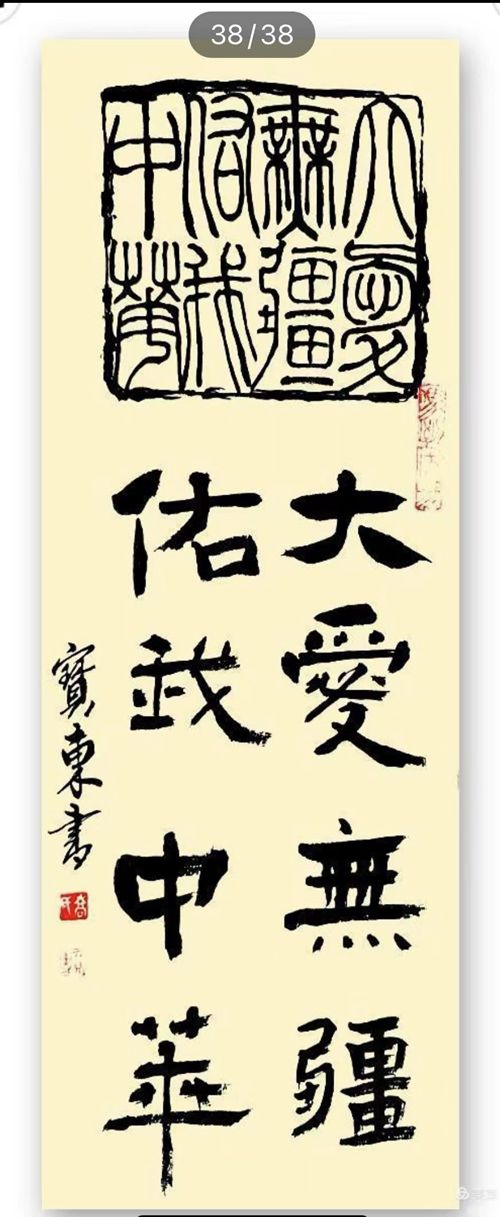 38/38
大愛
無疆
佑我
中華
大愛無疆
佑我中華
寶東書